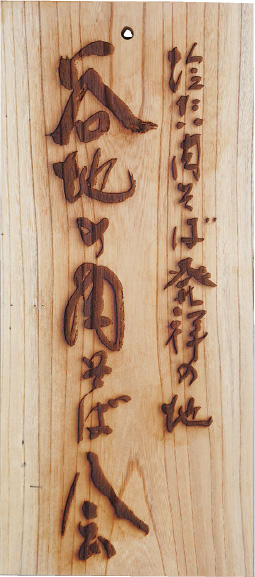 冷たい肉そば発祥の地
谷地の肉そば会